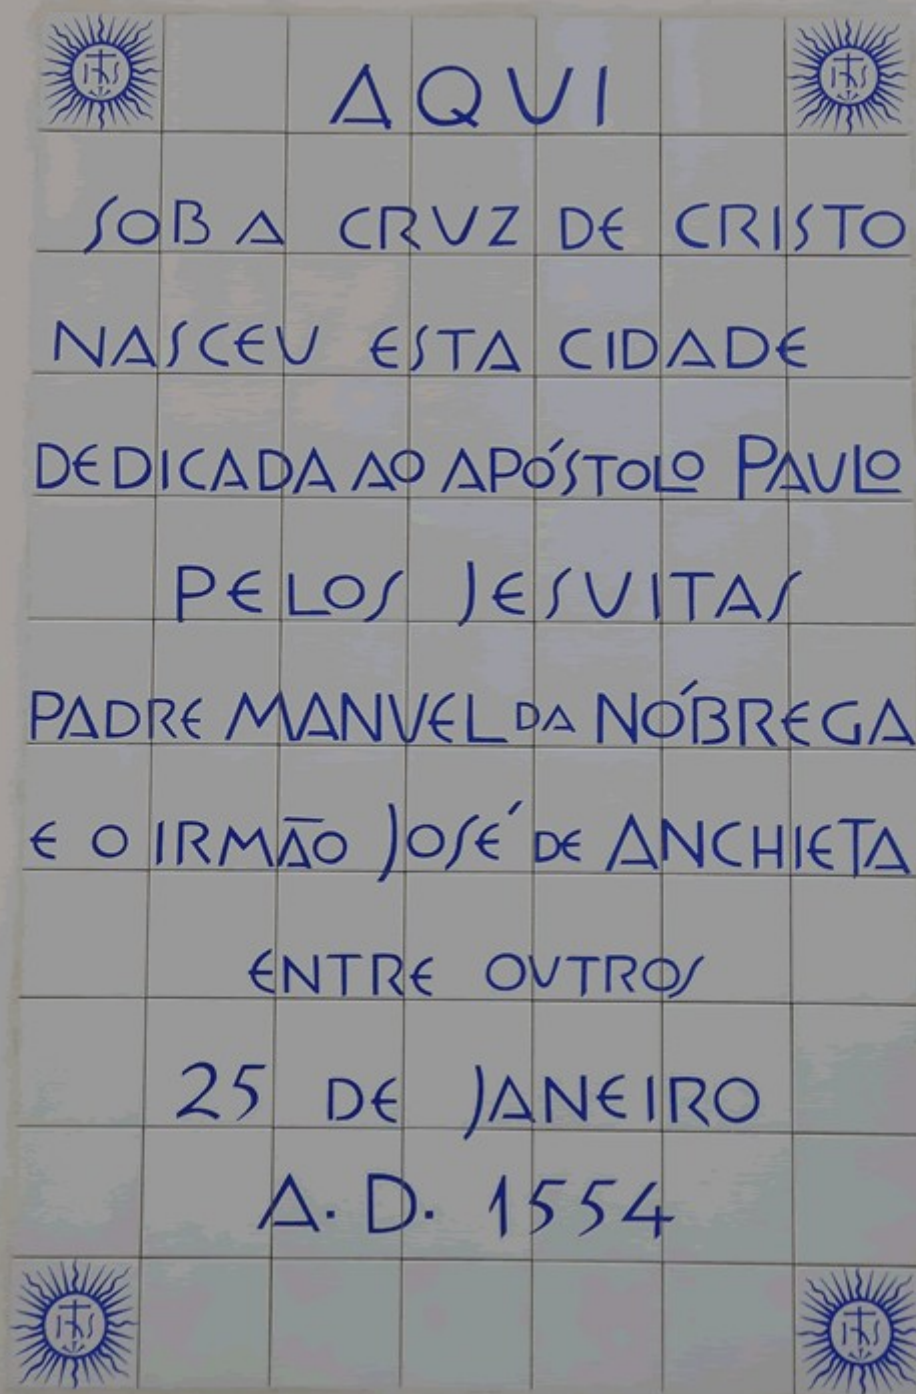 IHS IHS
AQUI
SOB A CRUZ DE CRISTO
NASCEU ESTA CIDADE
DEDICADA AO APÓSTOLO PAULO
PELOS JESUITAS
PADRE MANUEL DA NÓBREGA
E O IRMÃO JOSÉ DE ANCHIETA
ENTRE OUTROS
25 DE JANEIRO
A.D. 1554
IHS IHS